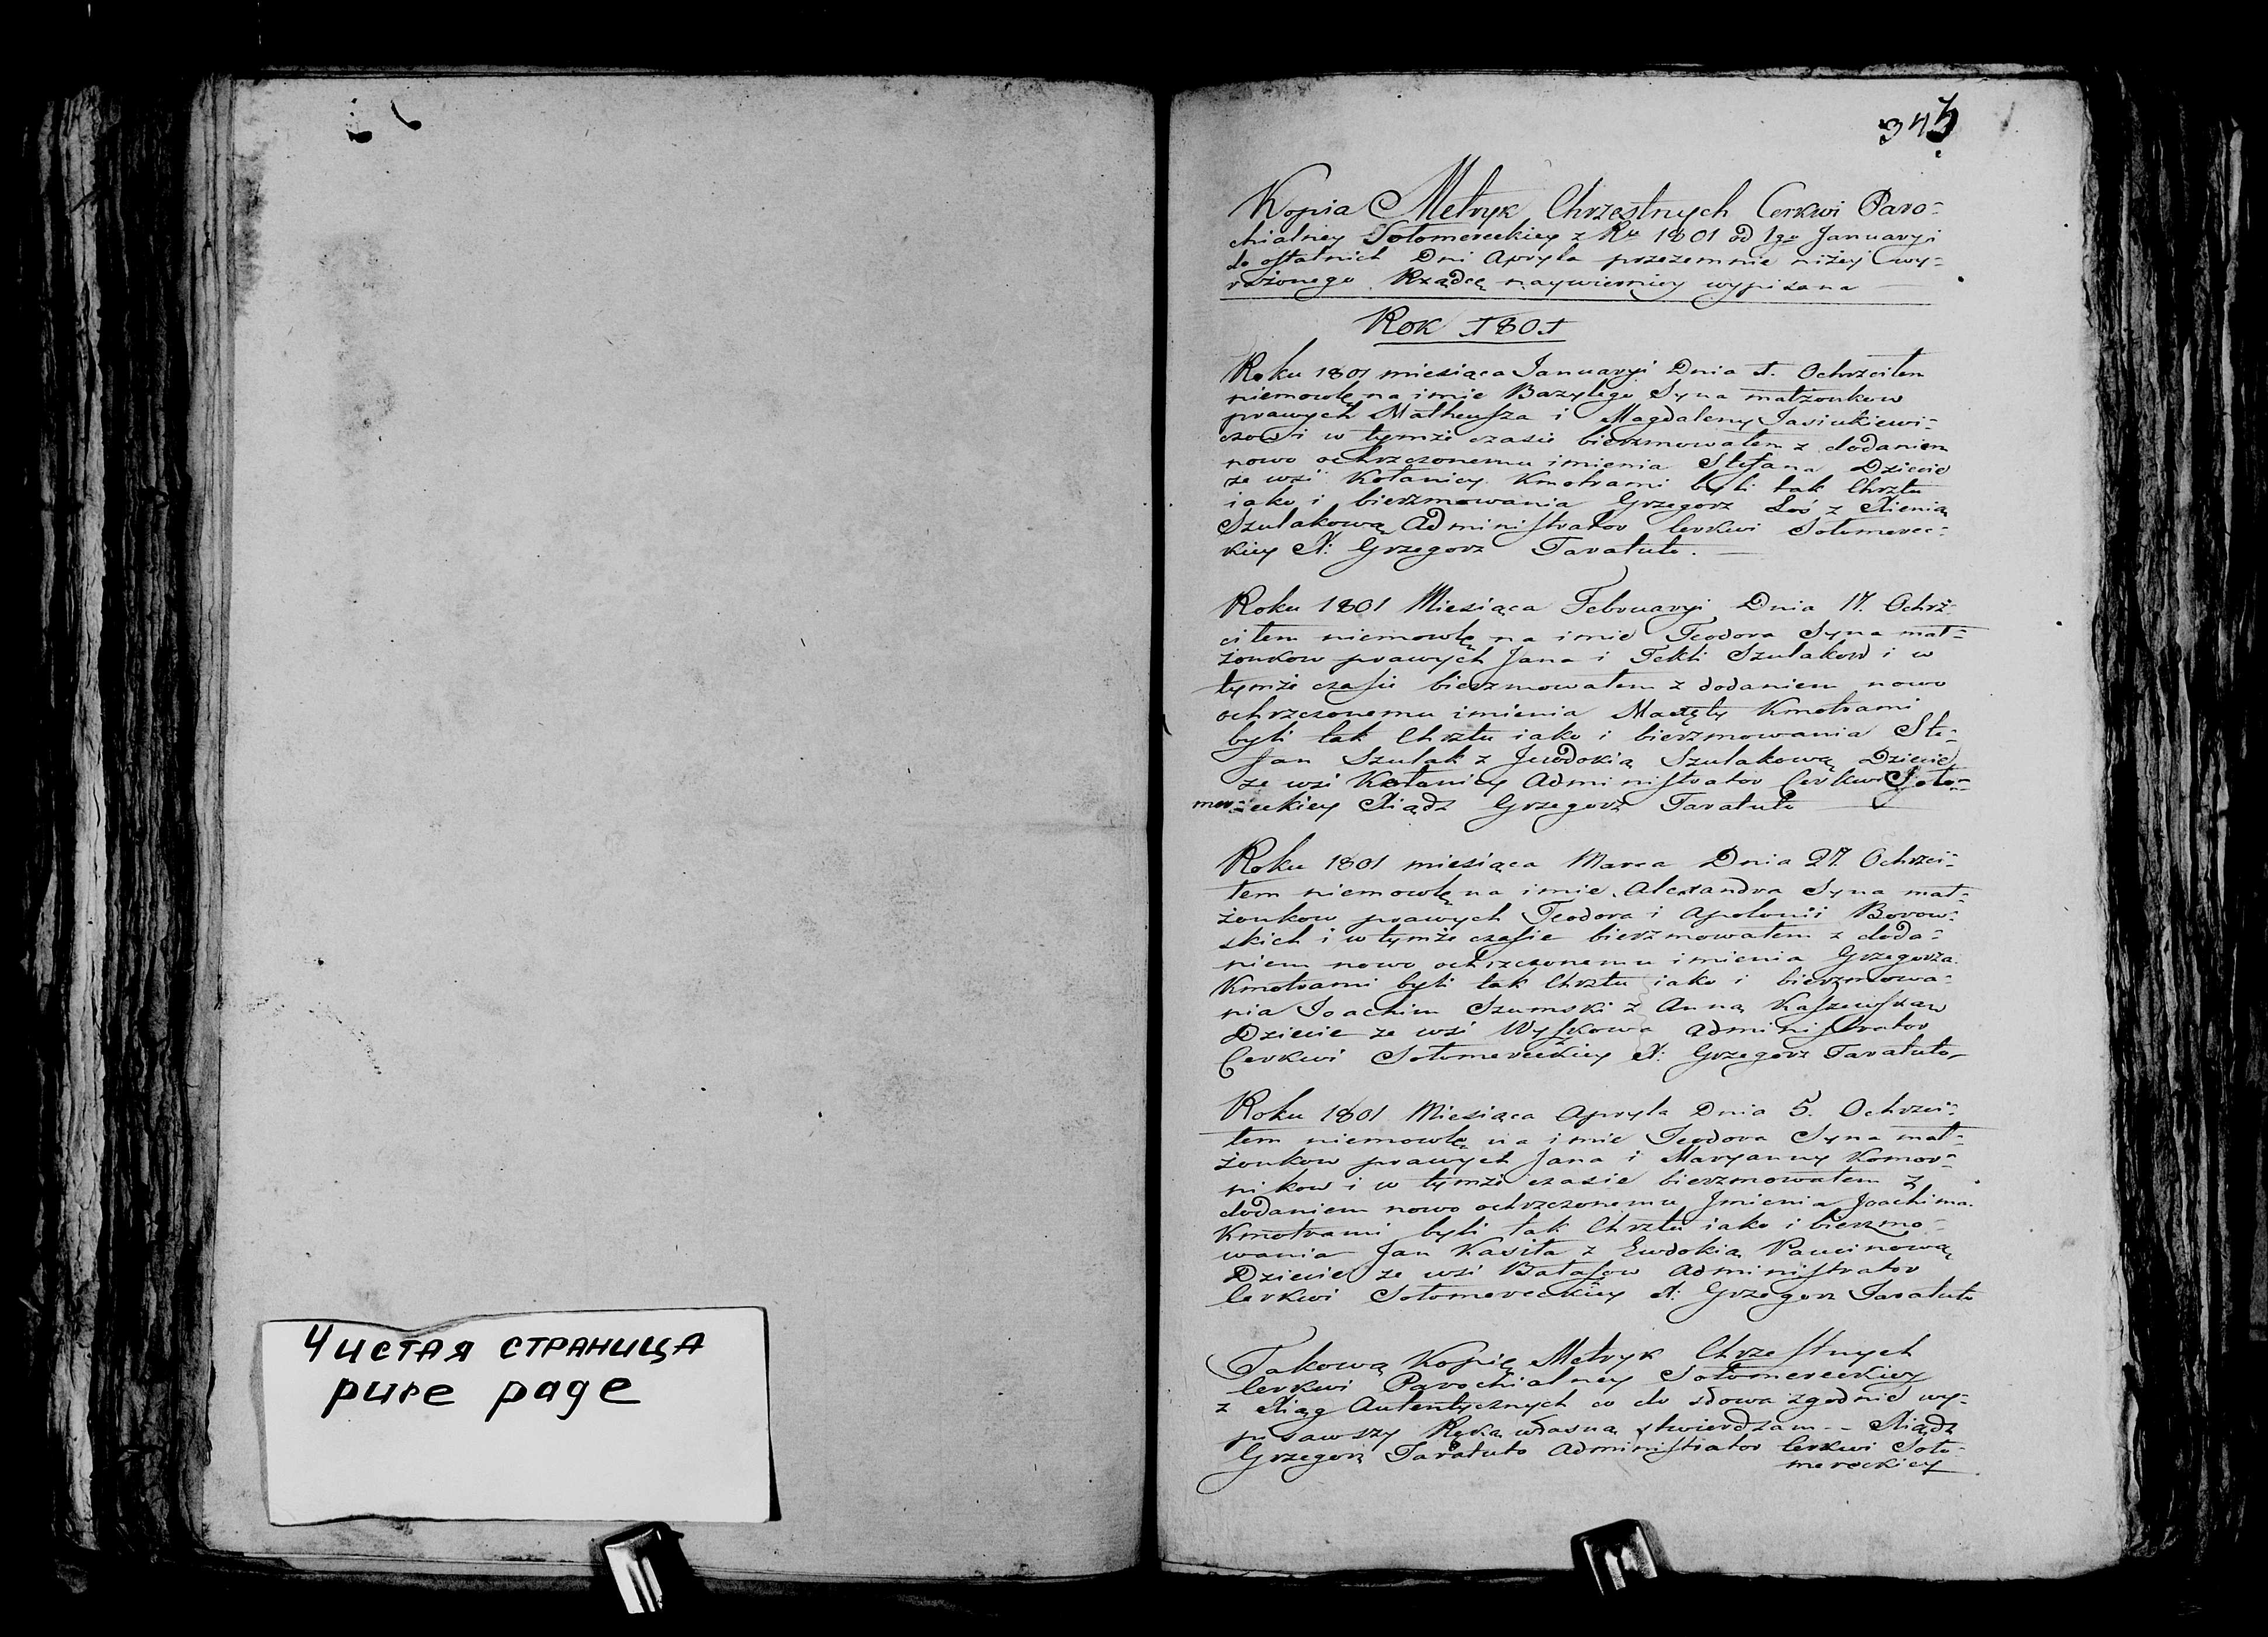 Чистая страница
pure page
345
Kopia Metryk Chrzestnych Cerkwi Paro=
chialney Sołomereckiey z Rku 1801 od 1go Januaryi
do ostatnich Dni Apryla przezemnie niżey wy=
rażonego Rządcę naywierniey wypisana
Rok 1801
Roku 1801 miesiąca Januaryi Dnia 1. Ochrzciłem
niemowlę na imie Bazylego Syna małżonkow
prawych Matheusza i Magdaleny Jasiukiewi=
czow i w tymże czasie bierzmowałem z dodaniem
nowo ochrzczonemu imienia Stefana Dziecie
ze wsi Kołanicy Kmotrami byli tak Chrztu
iako i bierzmowania Grzegorz Łoś z Xienią
Szulakową Administrator Cerkwi Sołomerec=
kiey X: Grzegorz Taratuto.
Roku 1801 Miesiąca Februaryi Dnia 17. Ochrz=
ciłem niemowlę na imie Teodora Syna mał=
żonkow prawych Jana i Tekli Szulakow i w
tymże czasie bierzmowałem z dodaniem nowo
ochrzczonemu imienia Kmotrami
byli tak Chrztu iako i bierzmowania Ste=
fan Szulak z Jewdokią Szulakową Dziecie
ze wsi Kołanicy Administrator Cerkwi Soło=
mer=eckiey Xiądz Grzegorz Taratuto
Roku 1801 miesiąca Marca Dnia 27. Ochrzci=
łem niemowlę na imie Alexandra Syna mał=
żonkow prawych Teodora i Apolonii Borow=
skich i w tymże czasie bierzmowałem z doda=
niem nowo ochrzczonemu imienia Grzegorza
Kmotrami byli tak Chrztu iako i bierzmowa=
nia Joachim Szumski z Anną Kaszewskąw
Dziecie ze wsi Wyskowa Administrator
Cerkwi Sołomereckiey X: Grzegorz Taratuto
Roku 1801 Miesiąca Apryla Dnia 5. Ochrzci=
łem niemowlę na imie Teodora Syna mał=
żonkow prawych Jana i Maryanny Komor=
nikow i w tymże czasie bierzmowałem z
dodaniem nowo ochrzczonemu Jmienia Joachima.
Kmotrami byli tak Chrztu iako i bierzmo=
wania Jan Kaviła z Ewdokią Paucinową
Dziecie ze wsi Batasow Administrator
Cerkwi Sołomereckiey X: Grzegorz Taratuto
Takową Kopią Metryk Chrzestnych
Cerkwi Parochialney Sołomereckiey
z Xiąg Autentycznych co do słowa zgodnie wy=
pisawszy Ręką własną stwierdzam -- Xiądz
Grzegorz Taratuto Administrator Cerkwi Soło=
mereckiey